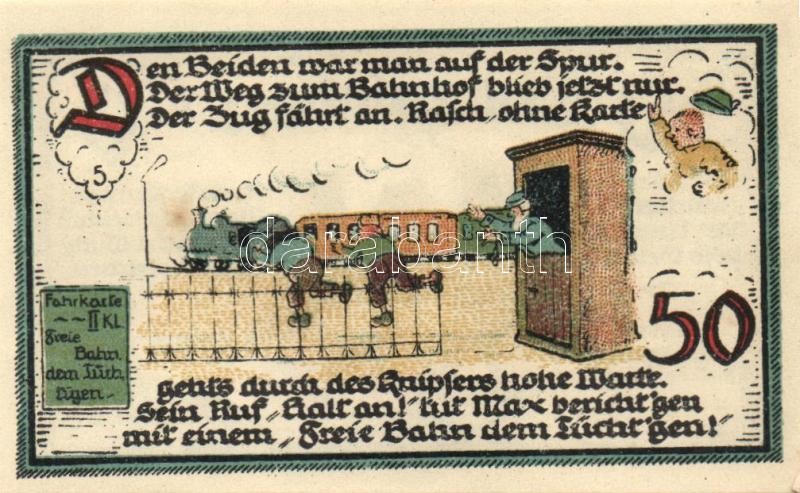 Den Beiden war man auf der Spur.
Der Weg zum Bahnhof blieb jetzt nur.
Der Zug fährt an. Rasch, ohne Karte
5.
darabanth
Fahrkarte
~~II Kl.
Freie
Bahn
dem Tüch
tigen.
50
geht's durch des Knipsers hohe Warte.
Sein Ruf „Halt an!" tut Max bericht'gen
mit einem „Freie Bahn dem Tücht'gen!"